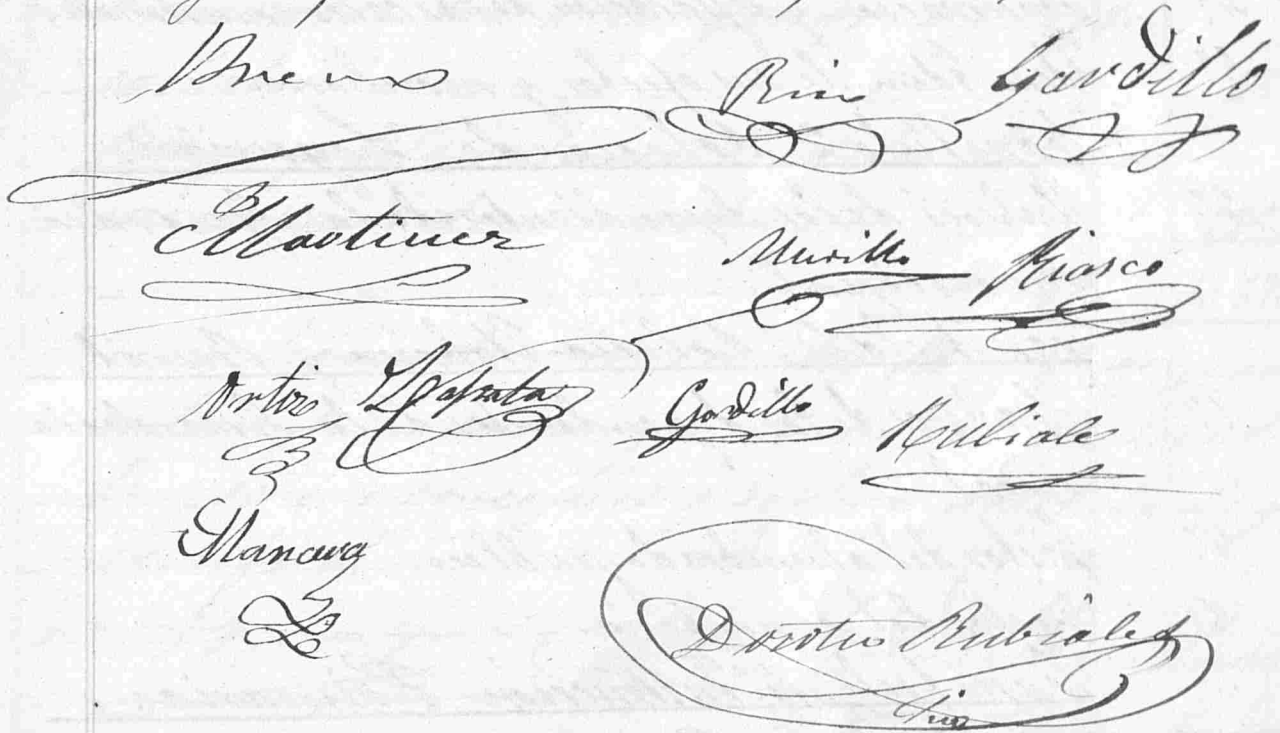 Bueno Rino Gordillo
Martinez Murillo Riasco
Ortiz Zapata Gordillo Rubiale
Mancera
Doroteo Rubiales